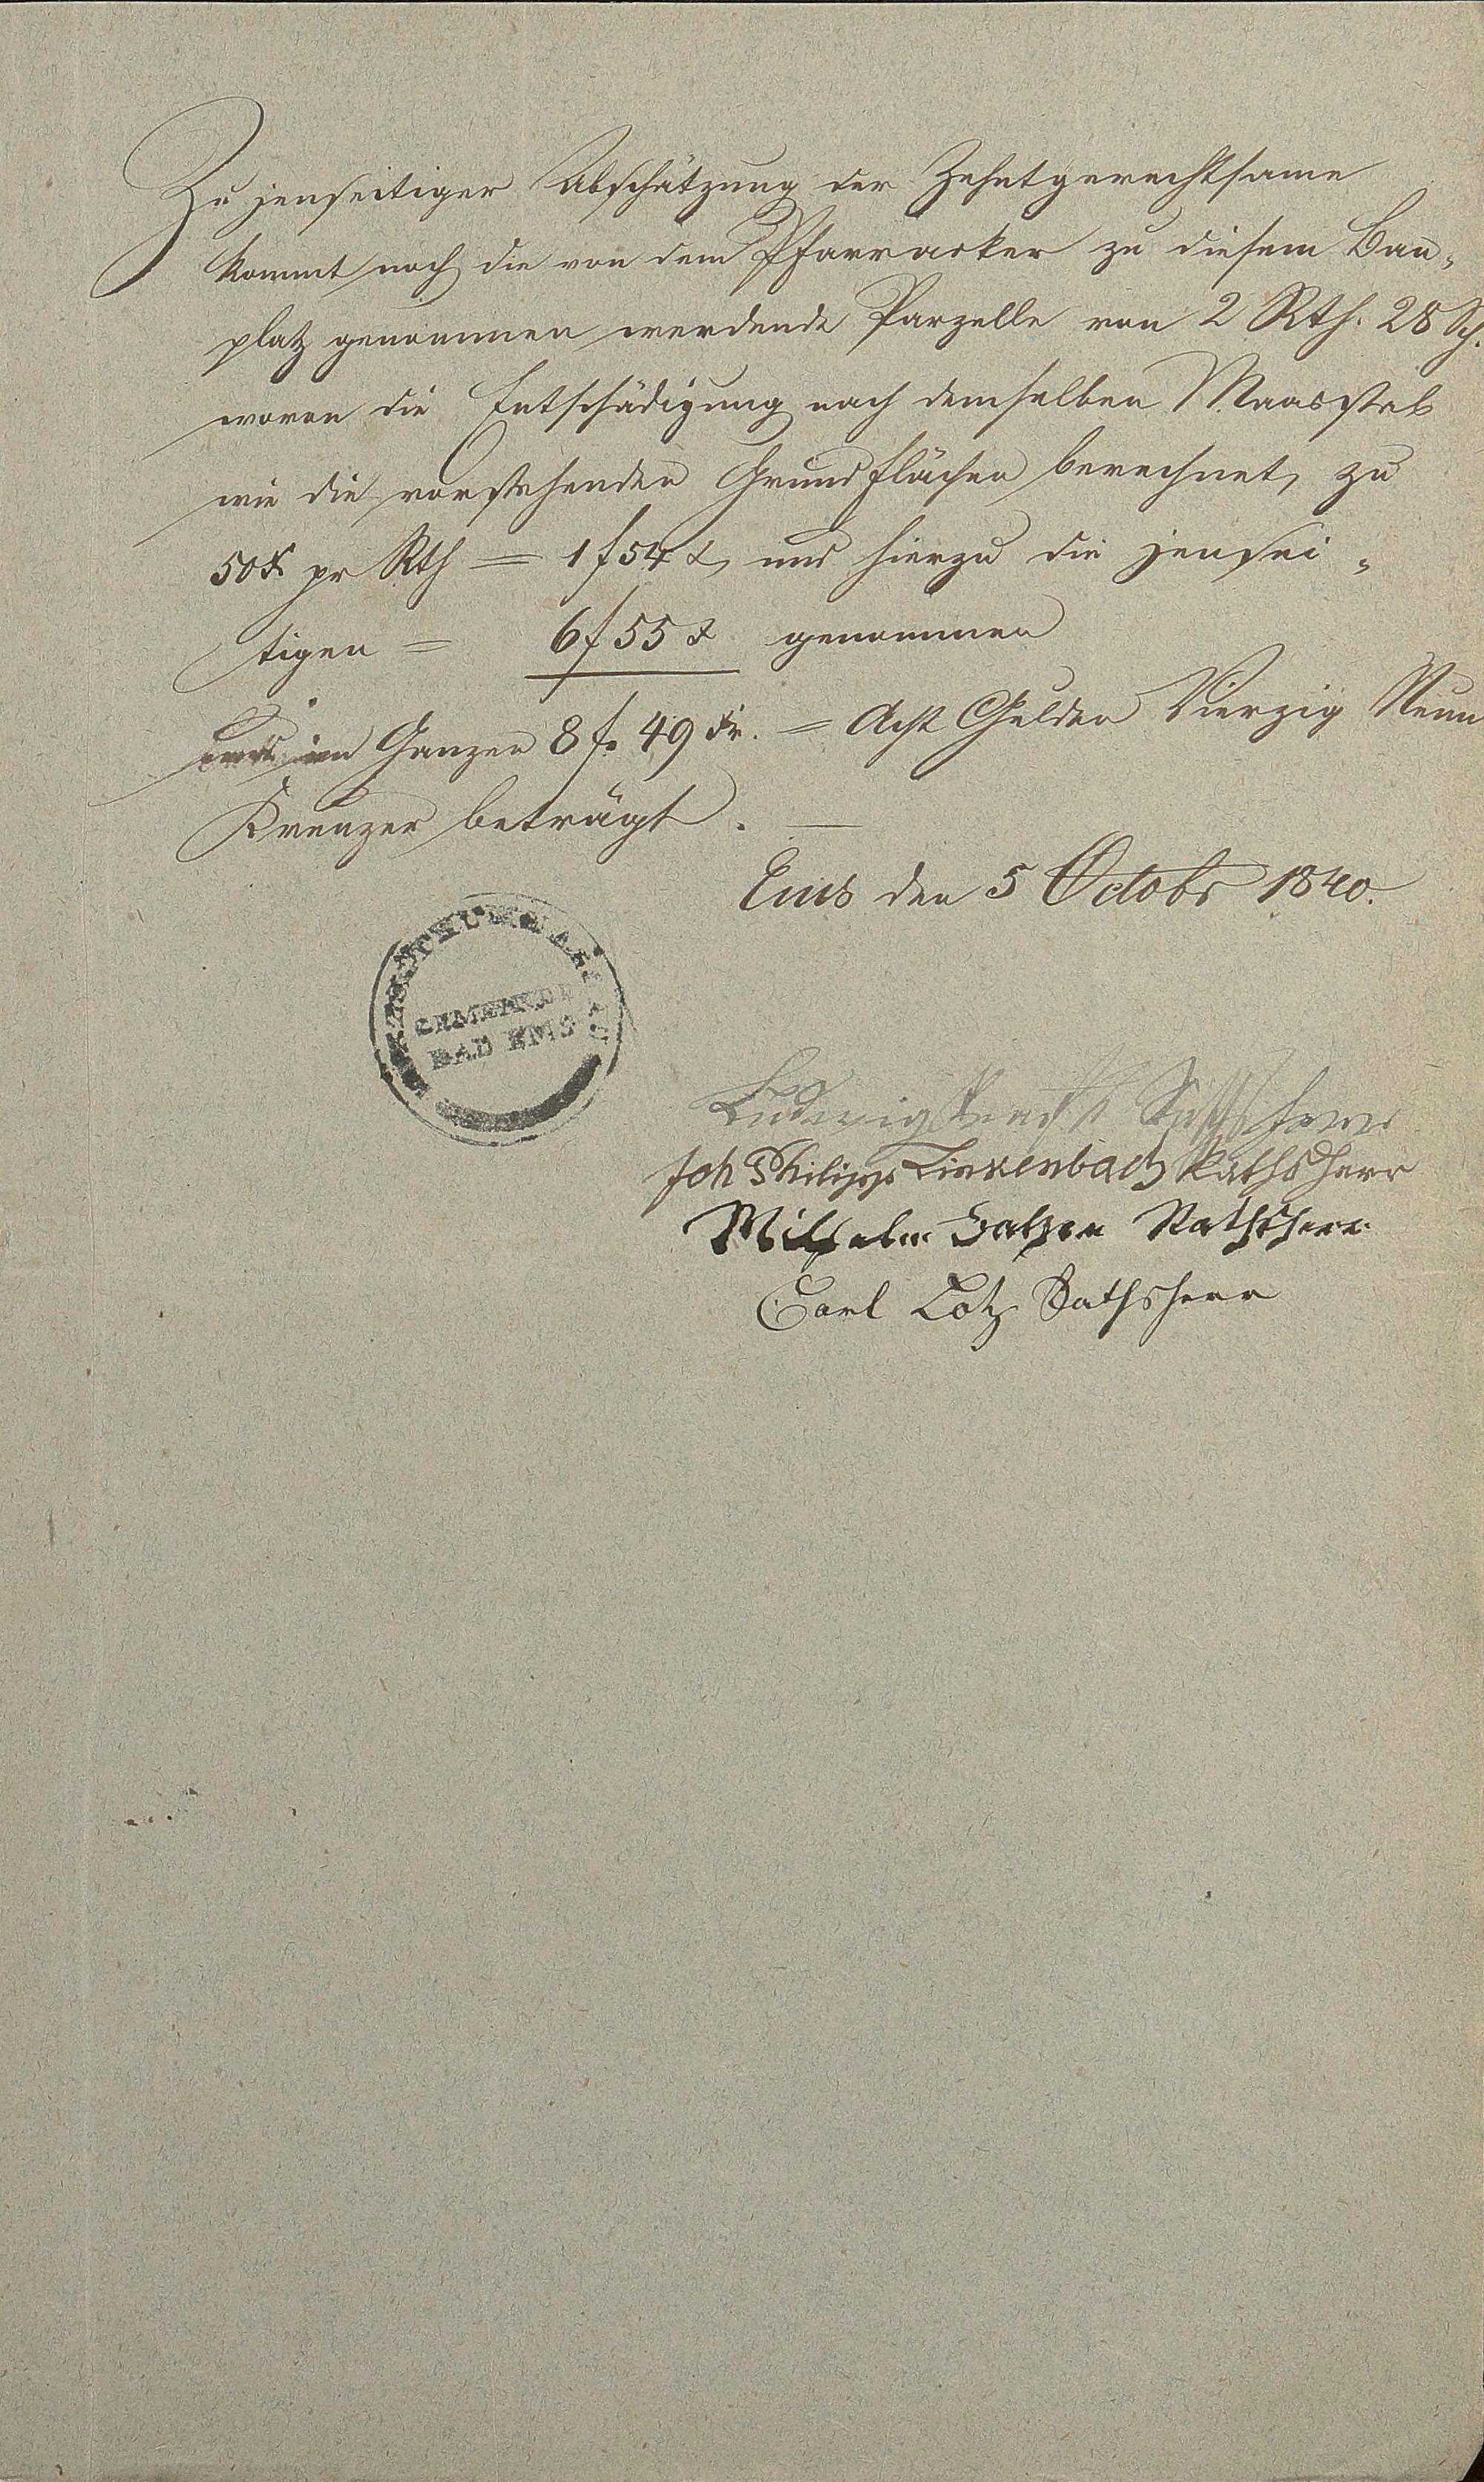 Zu jenseitiger Abschätzung der Zehntgerechtsame
kommt noch die von dem Pfarracker zu diesem Bau-
platz genommen werdende Parzelle von 2 Rth. 28 Sch.
wovon die Entschädigung nach demselben Maasstab
wie die vorstehenden Grundflächen berechnet, zu
50 x pr Rth = 1 f 54 x, und hierzu die jensei-
tigen = 6 f 55 x genommen
im Ganzen 8 f. 49 Kr. = Acht Gulden Vierzig Neun
Kreuzer beträgt. —
Ems den 5 Octobr 1840.
GEMEINDE
BAD EMS
Ludwig
Joh Philipps Linkenbach Rathsherr
Wilhelm Balzer Rathsherr
Carl Lotz Rathsherr